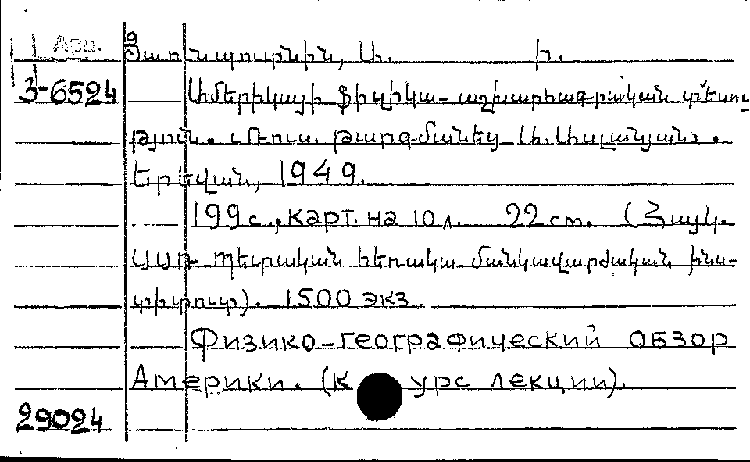 Арм. Ծառնպուրնին, Ա. Ի.
3-6524 Ամերիկայի ֆիզիկա-աշխարհագրական տեսու
թյուն. Թարգմանեց Ա. Ասլանյանը.
Երևան, 1949.
199с., карт. на 10 л. 22 см. (Հայկ.
ՍՍՌ պետական հեռակա մանկավարժական ինս-
տիտուտ). 1500 экз.
Физико-географический обзор
Америки. (Курс лекции).
29024